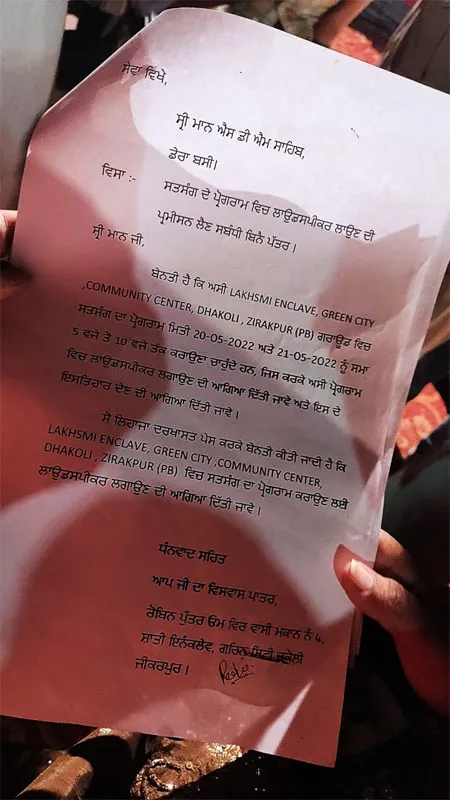 ਸੇਵਾ ਵਿਖੇ,
ਸ੍ਰੀ ਮਾਨ ਐਸ ਡੀ ਐਮ ਸਾਹਿਬ,
ਡੇਰਾ ਬਸੀ।
ਵਿਸਾ :- ਸਤਸੰਗ ਦੇ ਪ੍ਰੋਗਰਾਮ ਵਿਚ ਲਾਊਡਸਪੀਕਰ ਲਾਉਣ ਦੀ
ਪ੍ਰਮੀਸਨ ਲੈਣ ਸਬੰਧੀ ਬਿਨੈ ਪੱਤਰ।
ਸ੍ਰੀ ਮਾਨ ਜੀ,
ਬੇਨਤੀ ਹੈ ਕਿ ਅਸੀ LAKHSMI ENCLAVE, GREEN CITY
,COMMUNITY CENTER, DHAKOLI , ZIRAKPUR (PB) ਗਰਾਊਂਡ ਵਿਚ
ਸਤਸੰਗ ਦਾ ਪ੍ਰੋਗਰਾਮ ਮਿਤੀ 20-05-2022 ਅਤੇ 21-05-2022 ਨੂੰ ਸਮਾ
5 ਵਜੇ ਤੋ 10 ਵਜੇ ਤੱਕ ਕਰਾਉਣਾ ਚਾਹੁੰਦੇ ਹਨ, ਜਿਸ ਕਰਕੇ ਅਸੀ ਪ੍ਰੋਗਰਾਮ
ਵਿਚ ਲਾਊਡਸਪੀਕਰ ਲਗਾਉਣ ਦੀ ਆਗਿਆ ਦਿੱਤੀ ਜਾਵੇ ਅਤੇ ਇਸ ਦੇ
ਇਸਤਿਹਾਰ ਦੇਣ ਦੀ ਆਗਿਆ ਦਿੱਤੀ ਜਾਵੇ।
ਸੋ ਲਿਹਾਜਾ ਦਰਖਾਸਤ ਪੇਸ ਕਰਕੇ ਬੇਨਤੀ ਕੀਤੀ ਜਾਦੀ ਹੈ ਕਿ
LAKHSMI ENCLAVE, GREEN CITY ,COMMUNITY CENTER,
DHAKOLI , ZIRAKPUR (PB) ਵਿਚ ਸਤਸੰਗ ਦਾ ਪ੍ਰੋਗਰਾਮ ਕਰਾਉਣ ਲਈ
ਲਾਊਡਸਪੀਕਰ ਲਗਾਉਣ ਦੀ ਆਗਿਆ ਦਿੱਤੀ ਜਾਵੇ।
ਧੰਨਵਾਦ ਸਹਿਤ
ਆਪ ਜੀ ਦਾ ਵਿਸਵਾਸ ਪਾਤਰ,
ਰੋਬਿਨ ਪੁੱਤਰ ਓਮ ਵਿਰ ਵਾਸੀ ਮਕਾਨ ਨੰ 4,
ਸਾਤੀ ਇਨੰਕਲੇਵ, ਗਰਿਨ ਸਿਟੀ ਢਕੋਲੀ
ਜੀਕਰਪੁਰ।